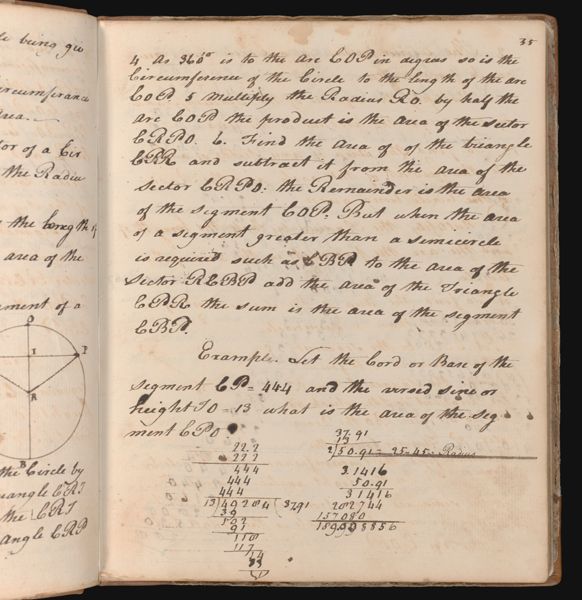 le being giv
circumferance
area.
tor of a Cir
the Radiu
the length of
area of the
gment of a
O
I
P
R
B
the Circle by
iangle CRI
the CRI
angle CRP
35
4 As 360° is to the arc COP in degrees so is the
Circumference of the Circle to the length of the arc
COP 5 Multiply the Radius RO. by half the
arc COP the product is the area of the sector
CRPO. 6. Find the area of of the triangle
CRP and subtract it from the area of the
Sector CRPO. the Remainder is the area
of the segment COP. But when the area
of a segment greater than a semicircle
is required such as CBP to the area of the
Sector RCBP add the area of the Triangle
CPR the sum is the area of the segment
CBP.
Example. Let the Cord or Base of the
segment CP = 444 and the versed sine or
height IO = 13 what is the area of the seg
ment CPO
222
222
444
444
444
13) 49284 (3791
39
102
91
118
117
14
13
37.91
13
2) 50.91 = 25-45 Radius
3.1416
50.91
31416
282744
157080
159.938856